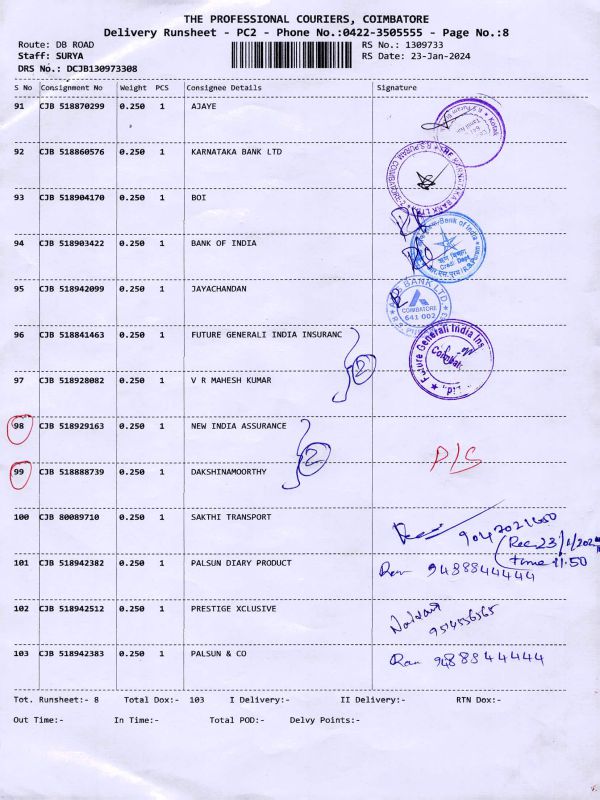 THE PROFESSIONAL COURIERS, COIMBATORE
Delivery Runsheet - PC2 - Phone No.:0422-3505555 - Page No.:8
Route: DB ROAD RS No.: 1309733
Staff: SURYA RS Date: 23-Jan-2024
DRS No.: DCJB130973308
S No Consignment No Weight PCS Consignee Details Signature
91 CJB 518870299 0.250 1 AJAYE
92 CJB 518860576 0.250 1 KARNATAKA BANK LTD
93 CJB 518904170 0.250 1 BOI
94 CJB 518903422 0.250 1 BANK OF INDIA
Bank of India
Credit Dept
95 CJB 518942099 0.250 1 JAYACHANDAN
BANK LTD.
COIMBATORE
641 002
96 CJB 518841463 0.250 1 FUTURE GENERALI INDIA INSURANC
2
Future Generali India Ins
97 CJB 518928082 0.250 1 V R MAHESH KUMAR
98 CJB 518929163 0.250 1 NEW INDIA ASSURANCE
2 D/S
99 CJB 518888739 0.250 1 DAKSHINAMOORTHY
100 CJB 80089710 0.250 1 SAKTHI TRANSPORT
Rec 23/1/202
time 11.50
101 CJB 518942382 0.250 1 PALSUN DIARY PRODUCT
9488844444
102 CJB 518942512 0.250 1 PRESTIGE XCLUSIVE
103 CJB 518942383 0.250 1 PALSUN & CO
9488844444
Tot. Runsheet:- 8 Total Dox:- 103 I Delivery:- II Delivery:- RTN Dox:-
Out Time:- In Time:- Total POD:- Delvy Points:-